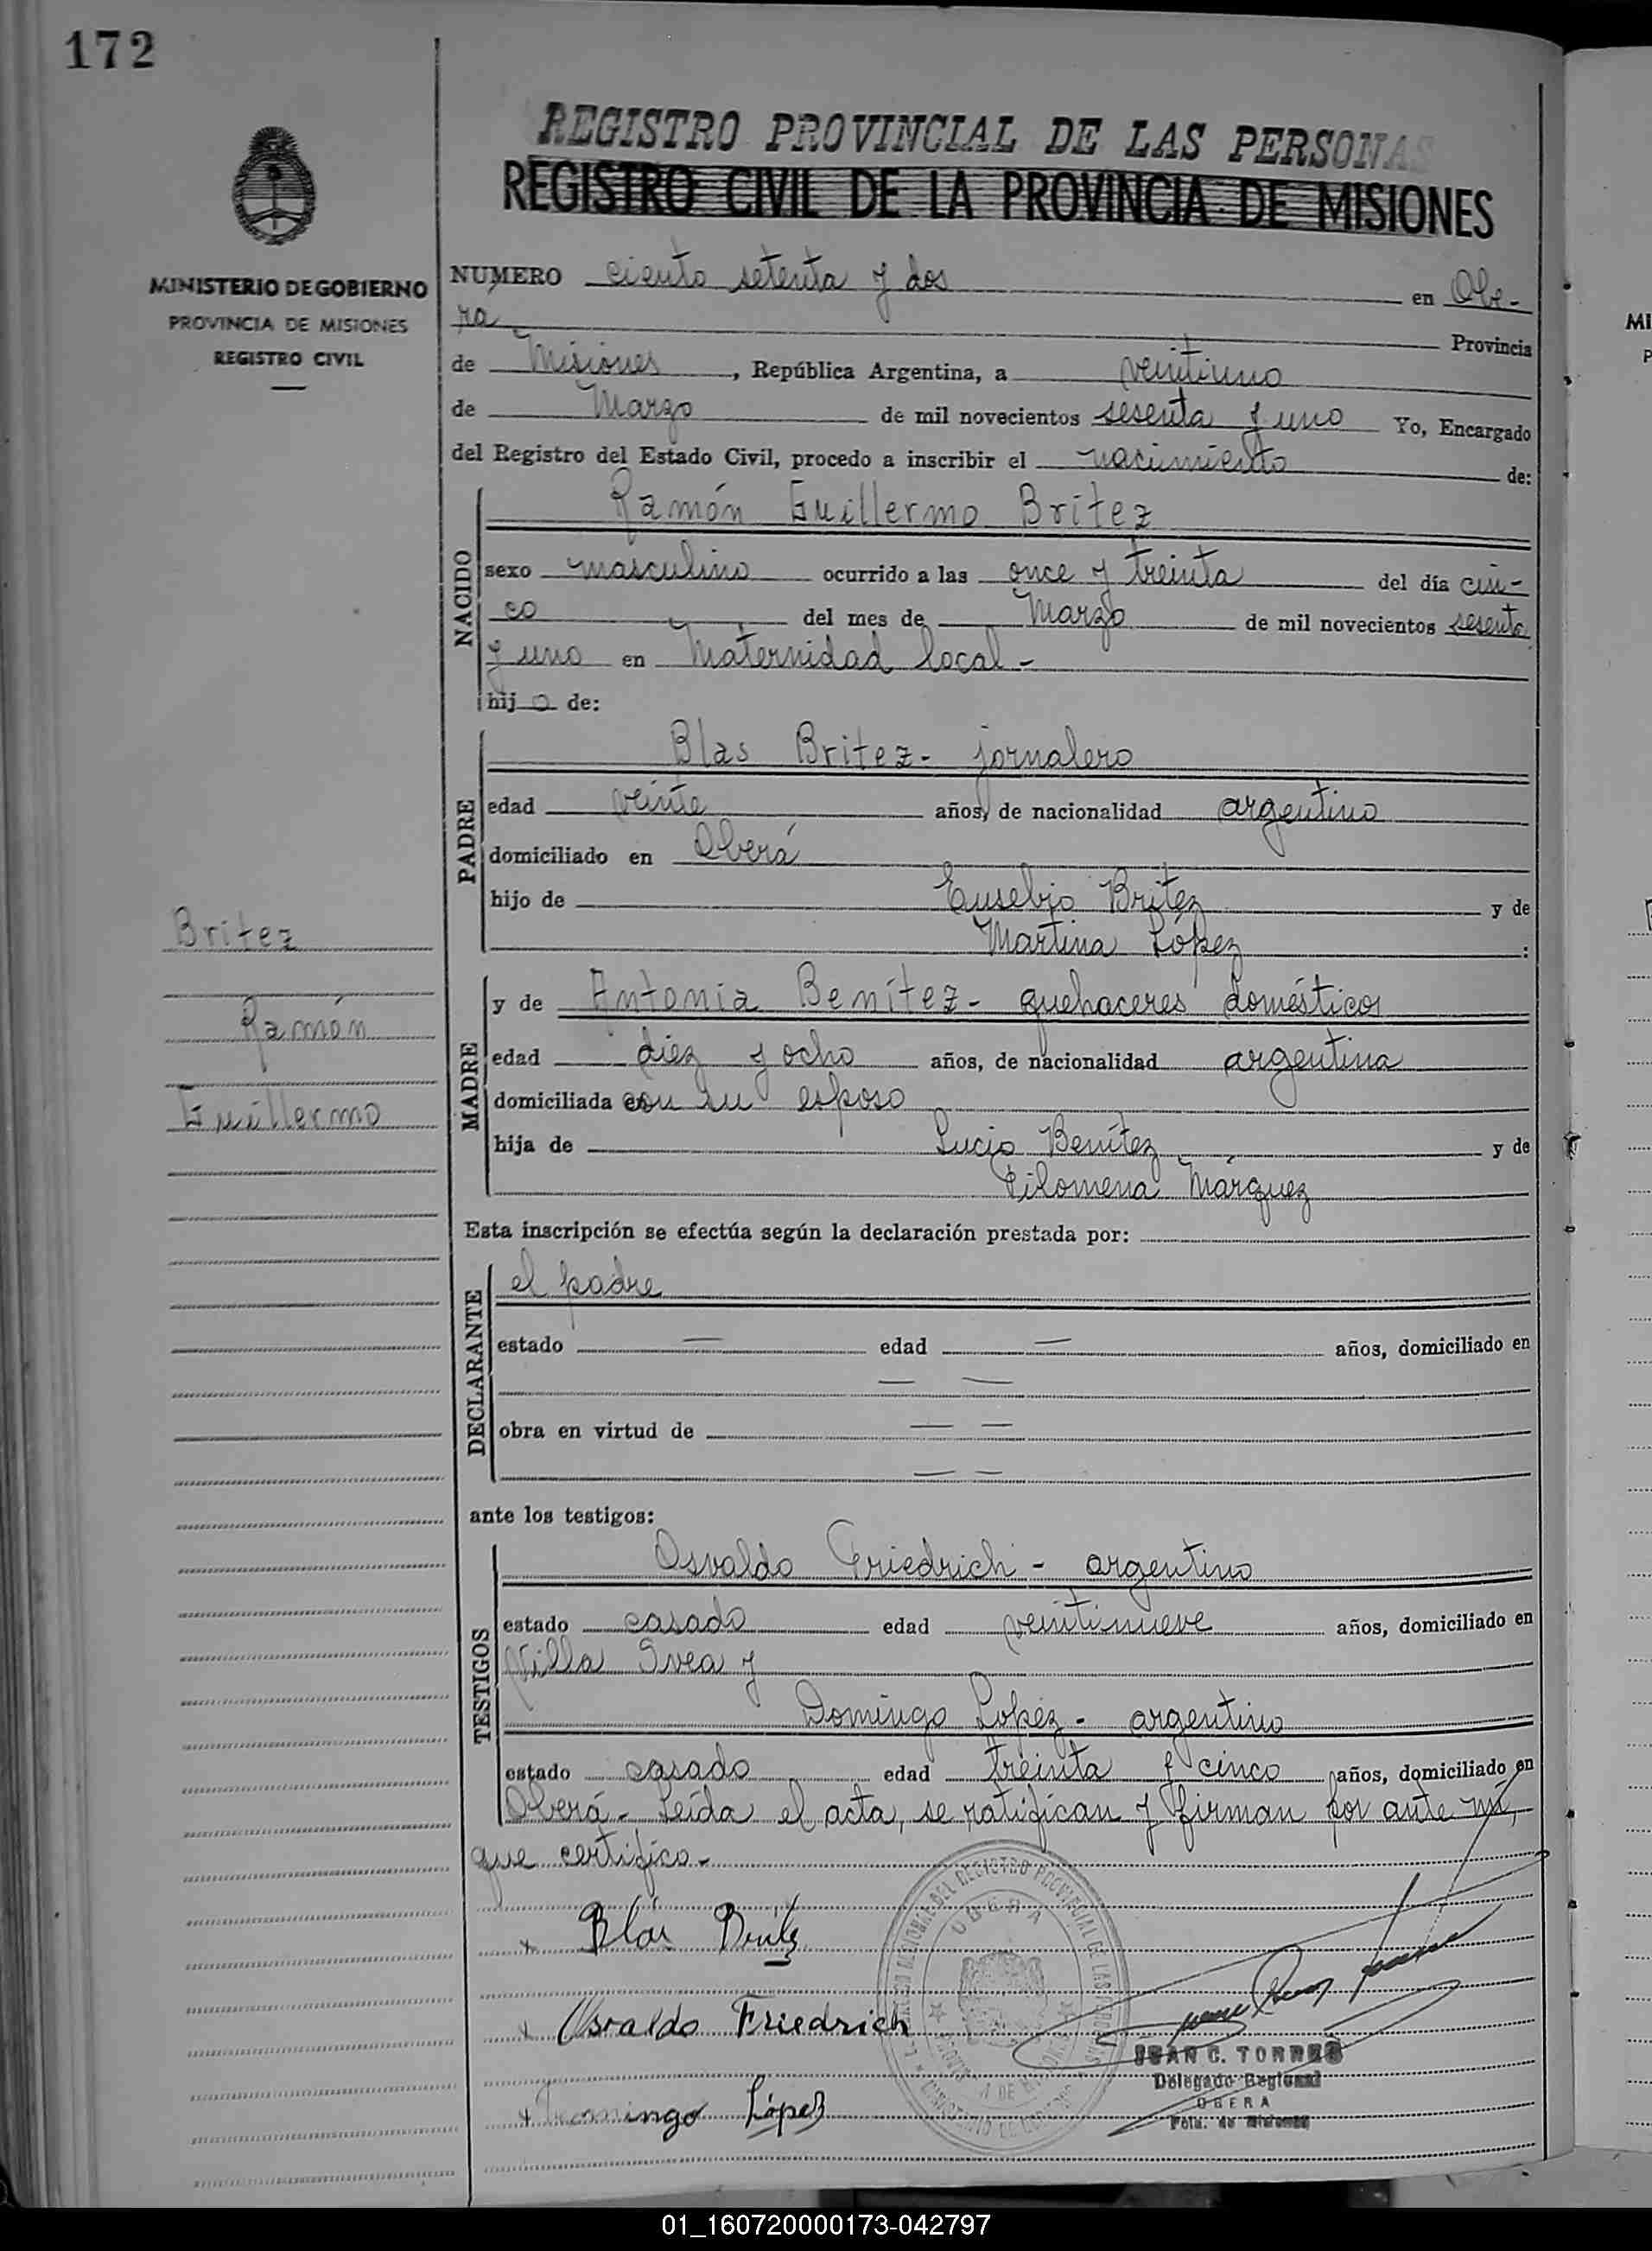 172
REGISTRO PROVINCIAL DE LAS PERSONAS
REGISTRO CIVIL DE LA PROVINCIA DE MISIONES
MINISTERIO DE GOBIERNO
PROVINCIA DE MISIONES
REGISTRO CIVIL
NUMERO ciento setenta y dos en Obe-
rá Provincia
de Misiones, República Argentina, a veintiuno
de Marzo de mil novecientos sesenta y uno Yo, Encargado
del Registro del Estado Civil, procedo a inscribir el nacimiento de:
NACIDO
Ramón Guillermo Britez
sexo masculino ocurrido a las once y treinta del día cin-
co del mes de Marzo de mil novecientos sesenta
y uno en Maternidad local -
hijo de:
PADRE
Blas Britez - jornalero
edad veinte años, de nacionalidad argentino
domiciliado en Oberá
hijo de Eusebio Britez y de
Martina López :
Britez
Ramón
Guillermo
MADRE
y de Antonia Benítez - quehaceres domésticos
edad diez y ocho años, de nacionalidad argentina
domiciliada con su esposo
hija de Lucio Benítez y de
Filomena Márquez
Esta inscripción se efectúa según la declaración prestada por:
DECLARANTE
el padre
estado — edad — años, domiciliado en
— —
obra en virtud de — —
— —
ante los testigos:
TESTIGOS
Osvaldo Friedrich - argentino
estado casado edad veintinueve años, domiciliado en
Villa Svea y
Domingo López - argentino
estado casado edad treinta y cinco años, domiciliado en
Oberá - Leída el acta, se ratifican y firman por ante mí,
que certifico -
+ Blas Britez
+ Osvaldo Friedrich
+ Domingo López
OBERA
JUAN C. TORRES
Delegado Regional
OBERA
Pcia. de Misiones
01_160720000173-042797